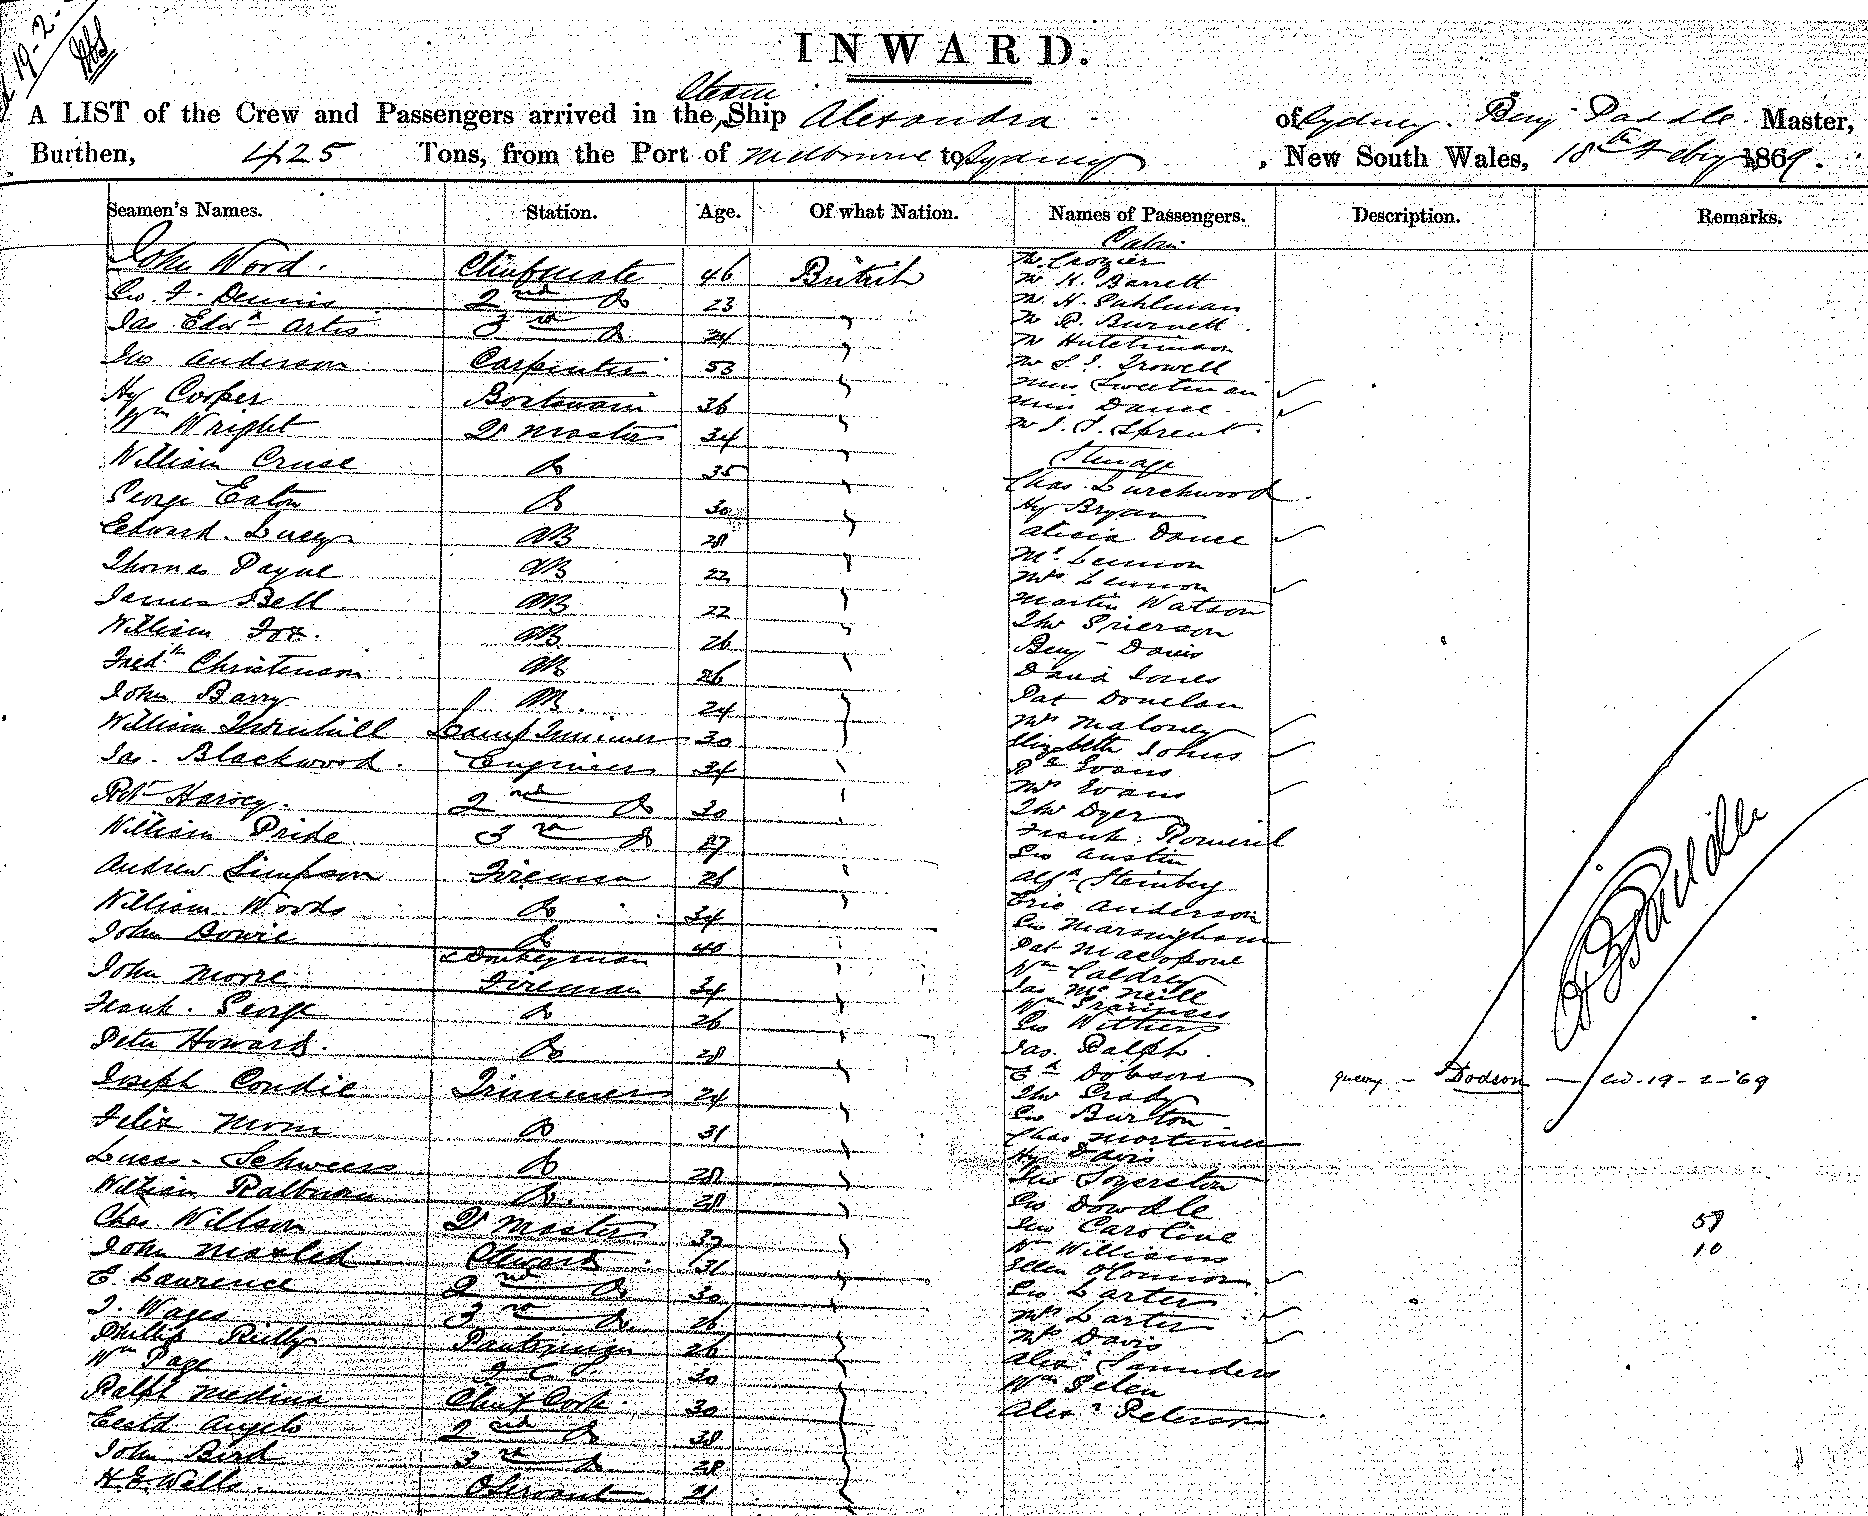 19-2-
INWARD.
Steam
A LIST of the Crew and Passengers arrived in the Ship Alexandra of Sydney. Benj Paddle Master,
Burthen, 425 Tons, from the Port of Melbourne to Sydney, New South Wales, 18th Feby 1869.
Seamen's Names. Station. Age. Of what Nation. Names of Passengers. Description. Remarks.
Cabin
John Wood. Chiefmate 46 British Mr Crozier
Mr K. Barrett
Geo F. Dennis 2nd Do 23 Mr H. Pahlman
Jas Edwd Artis 3rd Do 24 Mr P. Burnett
Mr Hutchinson
Jno Anderson Carpenter 53 Mr S. J. Trowell
Miss Sweetman
Hy Cooper Boatswain 36 Miss Dance
Wm Wright Qr Master 34 Mr J. S. Sprent
William Cruse Do 35 Steerage
Chas. Lurchwood
George Eaton Do 30 Hy Bryan
Edward. Lucy AB 28 Alicia Dance
Mr Lennon
Thomas Payne AB 22 Mrs Lennon
James Bell AB 22 Martin Watson
Thos Spierson
William Fox. AB 26 Benj Davis
Fredk Christenson AB 26 David Jones
John Barry AB. 24 Pat Donelan
William Thornhill Lamp Trimmer 30 Mrs Maloney
Elizabeth Johns
Jas. Blackwood. Engineer 34 Rd Evans
Mrs Evans
Robt Harvey. 2nd Do 30 Thos Dyer
William Pride 3rd Do 27 Frank. Romeril
Geo Austin
Andrew Simpson Fireman 26 Alfd Steinbey
William Woods Do 34 Eric Anderson
Geo Marsingham
John Bowie Do 40 Pat
& Donkeyman Wm Caldrey
John Moore Fireman 34 Jas McNeill
Wm
Frank. George Do 26 Geo Withers
Peter Howard. Do 28 Jas. Ralph.
Ed Dobson query - Dodson - 19-2-69
Joseph Condie Trimmer 24 Thos Grady
Geo Burton
Felix Do 31 Chas Mortimer
Hy Davis
Lucas Schweers Do 28 Thos Soyerston
William Do. 28 Geo Dowdle
Chas Willson Qr Master 37 Jno Caroline 58
John Steward 31 Wm Williams 10
Ellen O'Connor
E. Lawrence 2nd Do 30 Geo Larter
J. Wages 3rd Do. 26 Mrs Larter
Phillip Reilly Pantryman 26 Mrs Davis
Wm Page 30 Alexr Saunders
Ralph Medina Chief Cook. 30 Wm Pelen
Angelo 2nd Do 38 Alexr Peterson
John Bird 3rd Do 28
H. E. Wells. O Servant 21